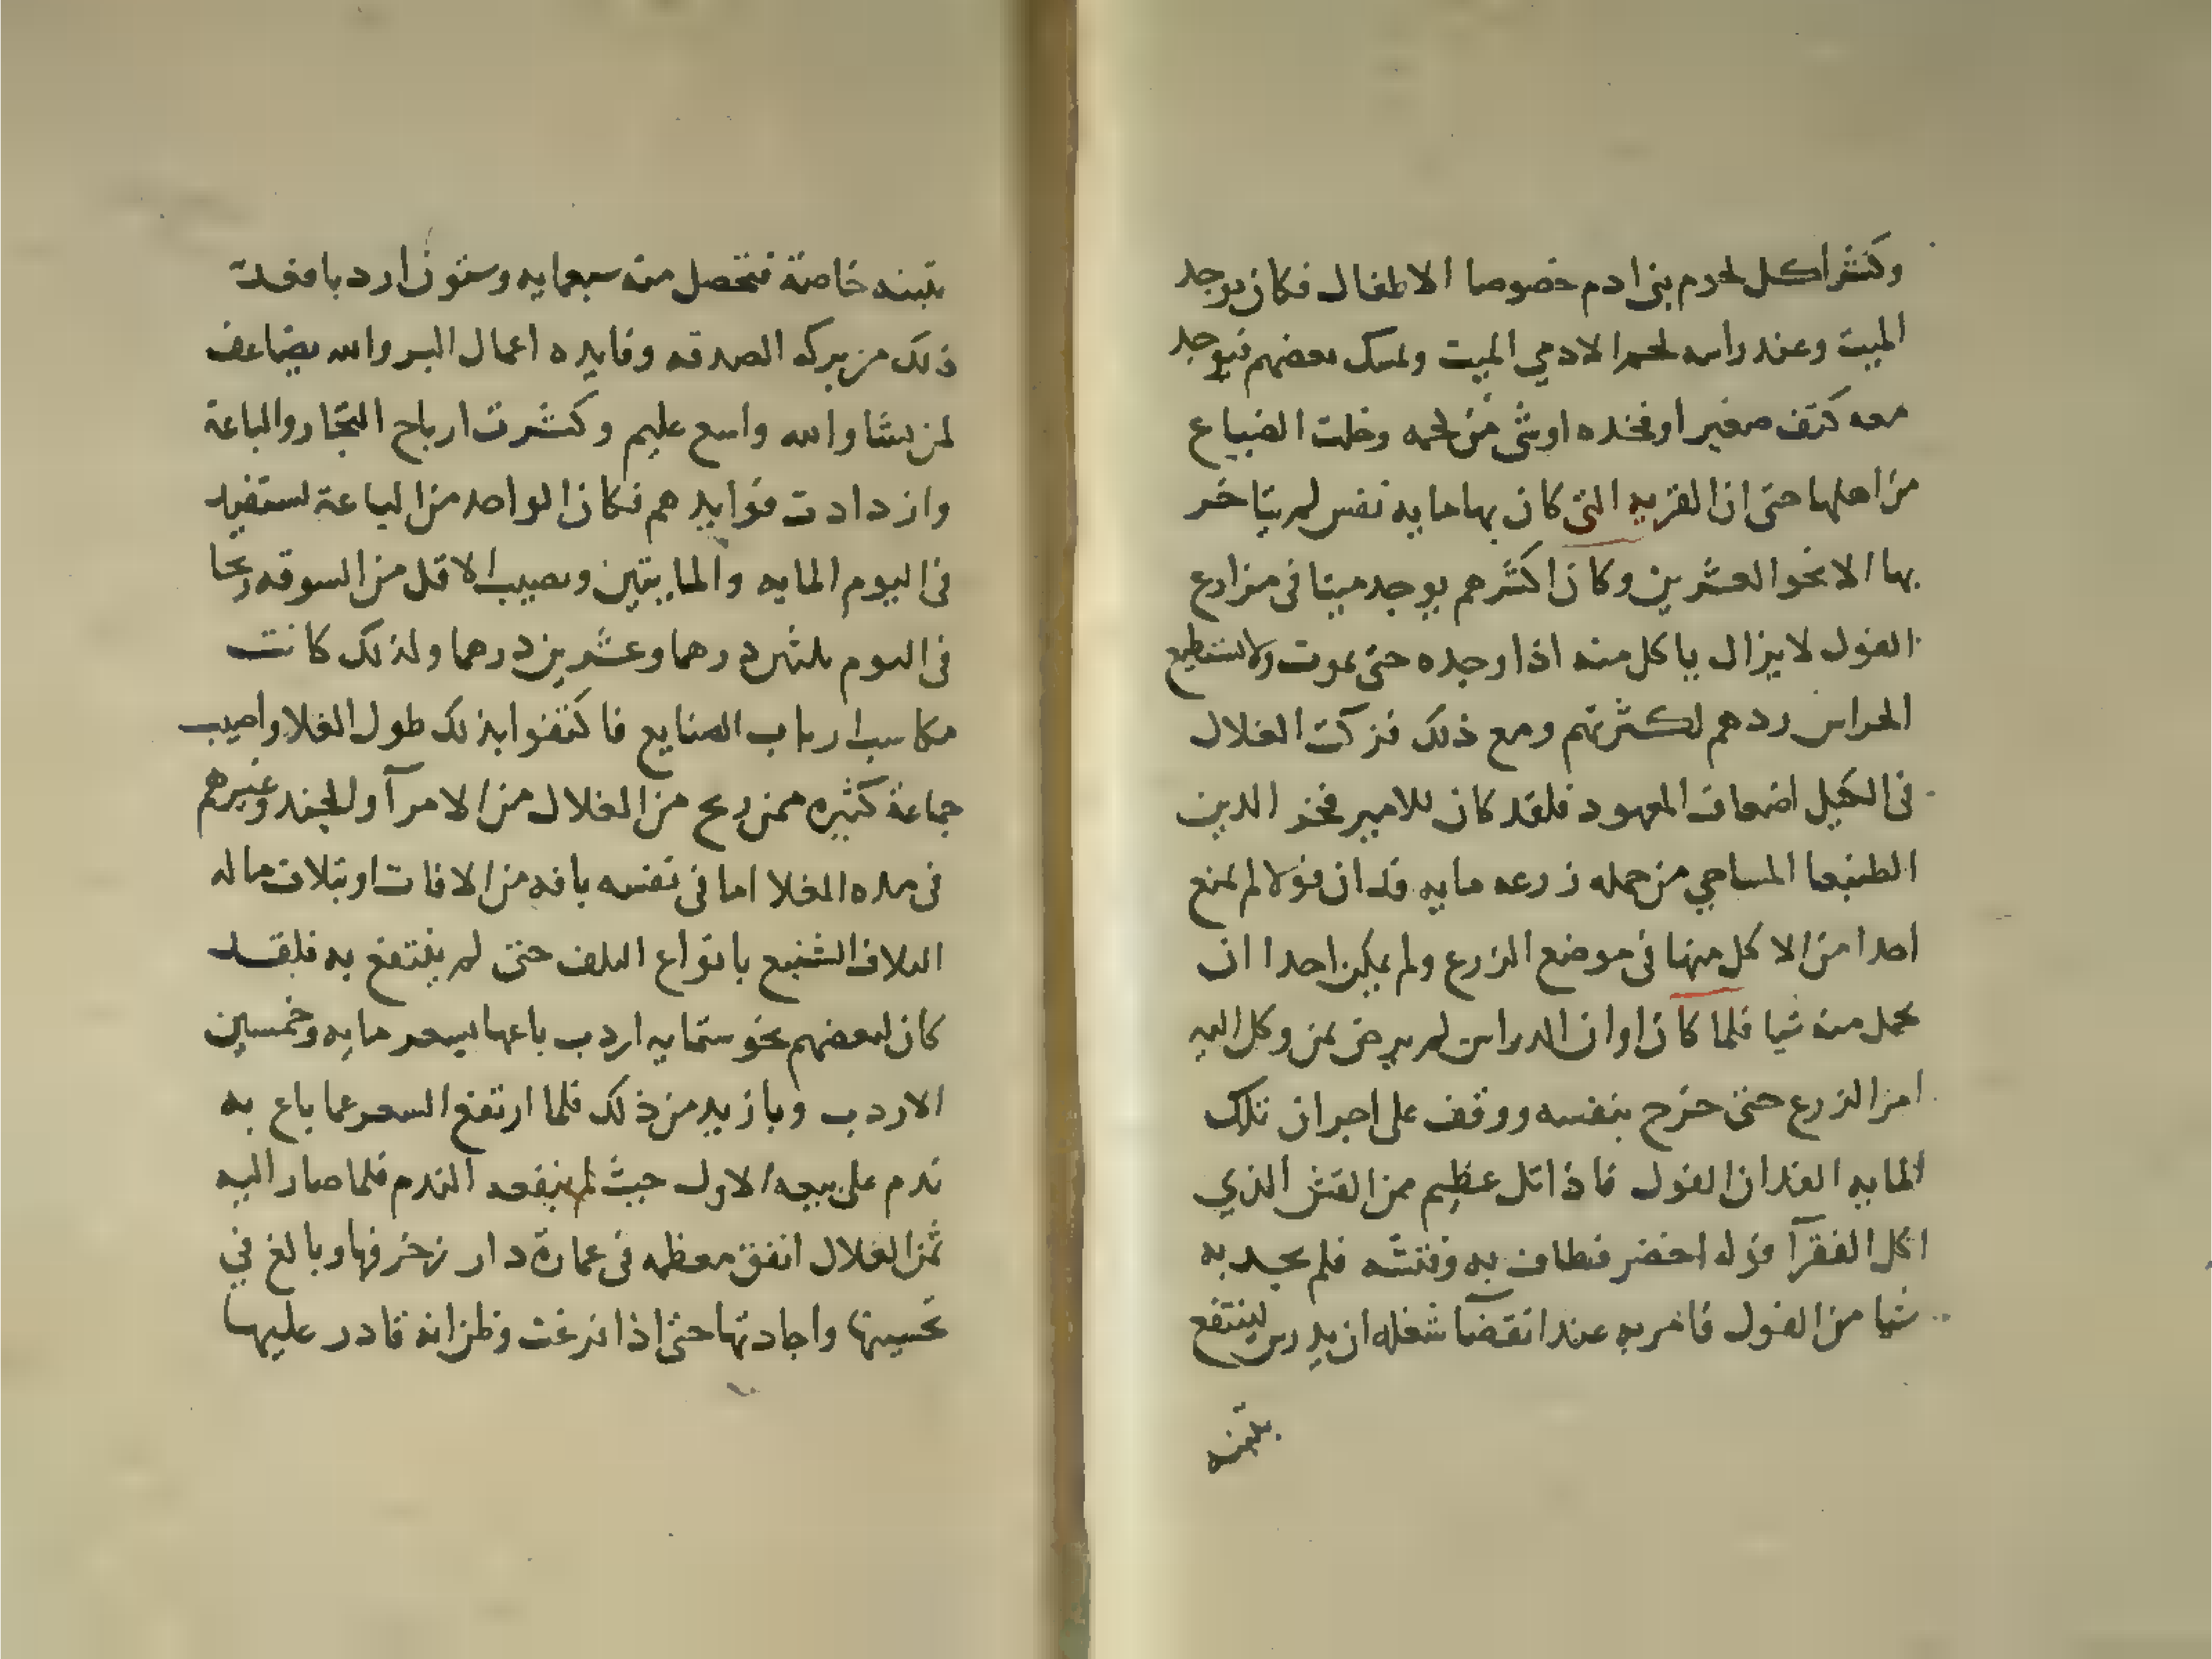 وكثر اكل لحوم بنى ادم خصوصا الاطفال فكان يوجد
الميت وعند راسه لحم الادمي الميت ويمسك بعضهم فيوجد
معه كتف صغير او فخده او شى من لحمه وخلت الضياع
من اهلها حتى ان القريه التى كان بها مايه نفس لم يتاخر
بها الا نحو العشرين وكان اكثرهم يوجد ميتا فى مزارع
الفول لا يزال ياكل منه اذا وجده حتى يموت ولا يستطيع
الحراس ردهم لكثرتهم ومع ذلك فزكت الغلال
فى الكيل اضعاف المعهود فلقد كان للامير فخر الدين
الطنبغا المساحي من جمله زرعه مايه فدان فولا لم يمنع
احدا من الاكل منها فى موضع الزرع ولم يمكن احدا ان
يحمل منه شيا فلما كان اوان الدراس لم يرض بمن وكل اليه
امر الزرع حتى خرج بنفسه ووقف على اجران تلك
المايه الفدان الفول فاذا تل عظيم من القش الذي
اكل الفقرآ فوله اخضر فطاف به وفتشه فلم يجد به
شيا من الفول فامر به عند انقضآ شغله ان يدرس لينتفع
بتبنه
بتبنه خاصة فتحصل منه سبعمايه وستون اردبا فعدت
ذلك من بركه الصدقه وفايده اعمال البر والله يضاعف
لمن يشا والله واسع عليم وكثرت ارباح التجار والباعة
وازدادت فوايدهم فكان الواحد من الباعة يستفيد
فى اليوم المايه والمايتين ويصيب الاقل من السوقه ربحا
فى اليوم ثلثين درهما وعشرين درهما ولذلك كانت
مكاسب ارباب الصنايع فاكتفوا بذلك طول الغلا واصيب
جماعة كثيره ممن ربح من الغلال من الامرآ والجند وغيرهم
فى مده الغلا اما فى نفسه بافه من الافات او بتلاف ماله
التلاف الشنيع بانواع التلف حتى لم ينتفع به فلقد
كان لبعضهم نحو ستمايه اردب باعها بسعر مايه وخمسين
الاردب وبازيد من ذلك فلما ارتفع السعر عما باع به
ندم على بيعه الاول حيث لم ينفعه الندم فلما صار اليه
ثمن الغلال انفق معظمه فى عمارة دار زخرفها وبالغ في
تحسينها واجادتها حتى اذا فرغت وظن انه قادر عليها